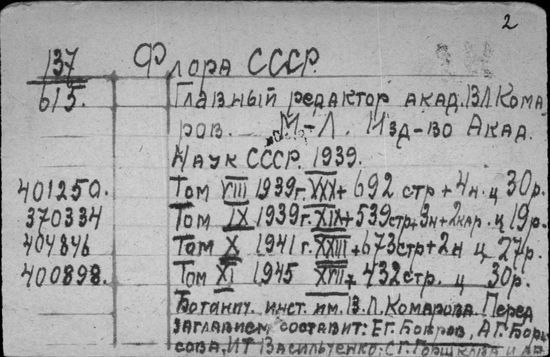 2
137
615.
Флора СССР.
Главный редактор акад. В.Л. Кома
ров. М-Л. Изд-во Акад.
Наук СССР. 1939.
401250. Том VIII 1939 г. XXX+692 стр+4н. ц 30р.
370334 Том IX 1939г. XIX+539стр+3н+2кар. ц 19р.
404846 Том X 1941 г. XXIII+673стр+2н ц 27р.
400898. Том XI 1945 XVIII+432стр. ц 30р.
Ботанич. инст. им. В.Л. Комарова. Перед
заглавием составит: Е.Г. Бобров, А.Г. Бори
сова, И.Т Васильченко; С.Г. Горшкова и др